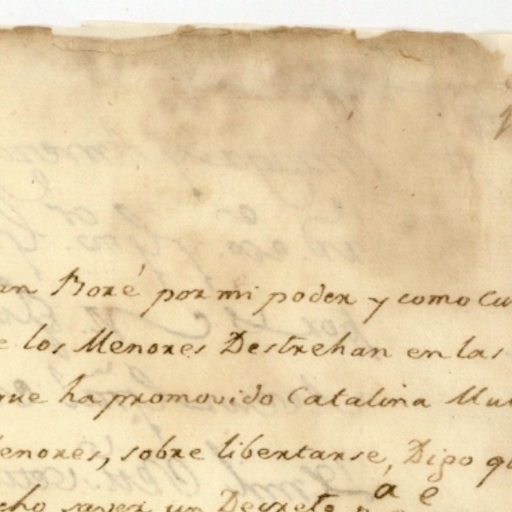 an Boré por mi poder y como Cu
e los Menores Destrehan en las
que ha promovido Catalina Mu
enores, sobre libertarse, Digo q
cho saver un Decreto